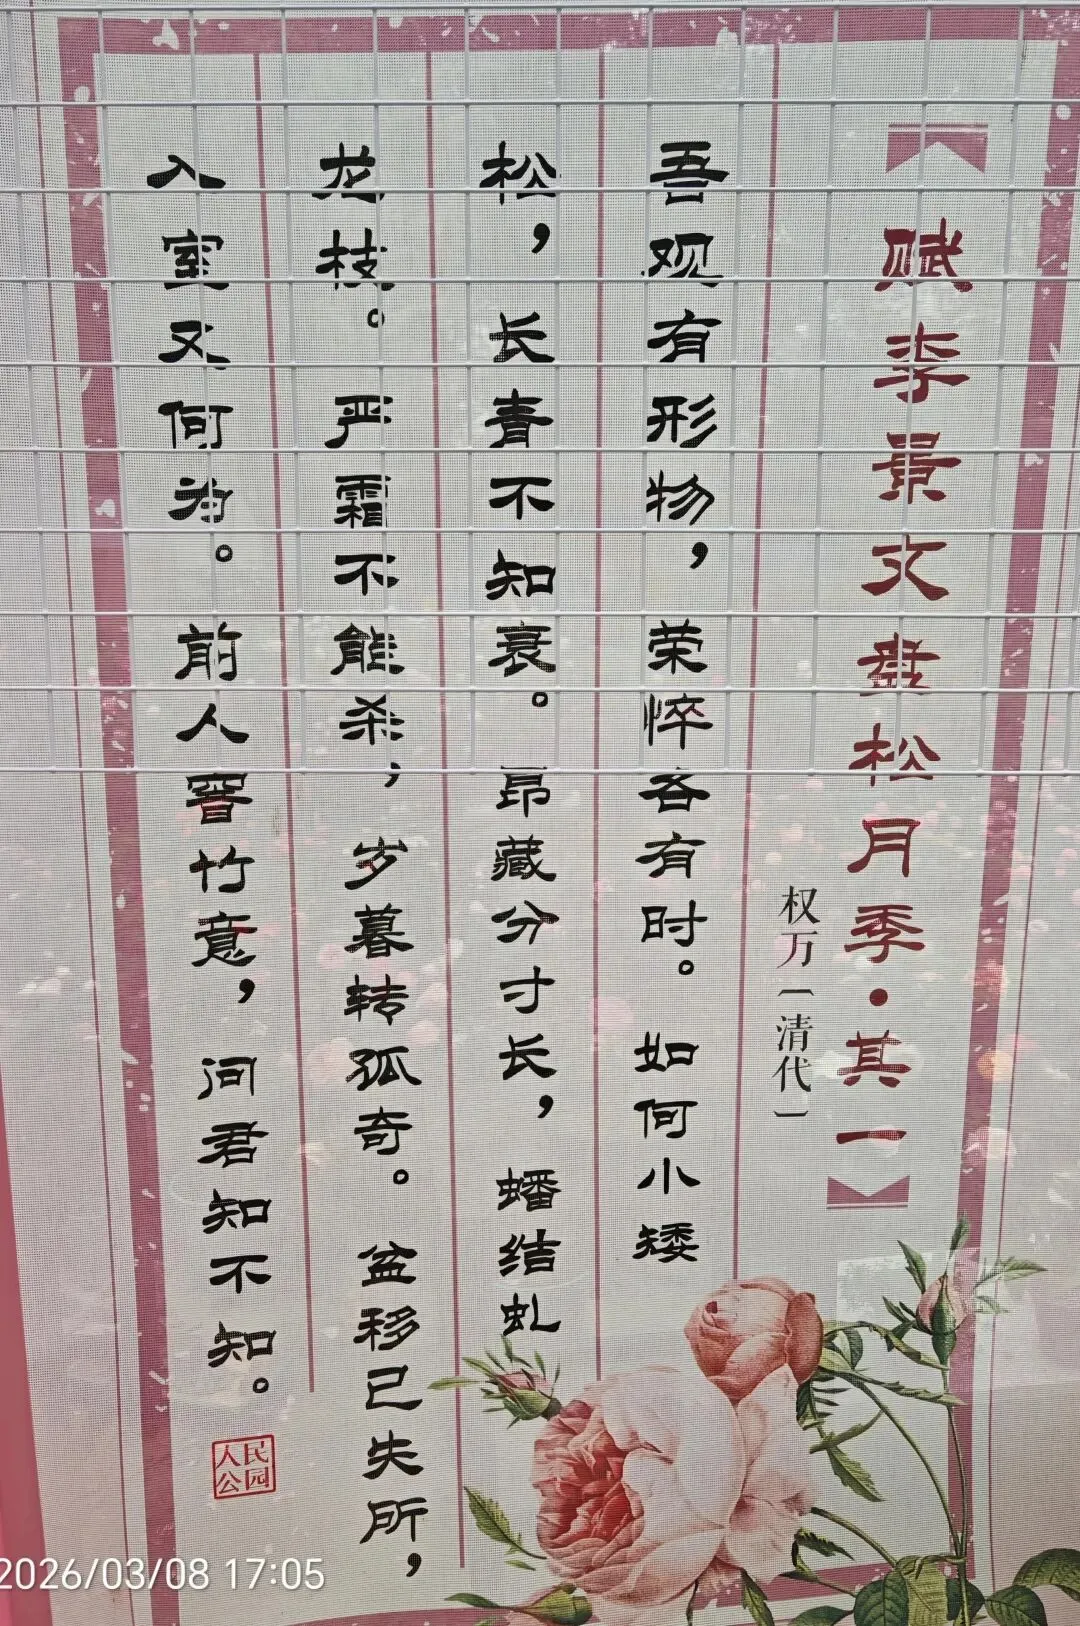 赋李景文盘松月季·其一
权万〔清代〕
吾观有形物，荣悴各有时。如何小矮
松，长青不知衰。昂藏分寸长，蟠结虬
龙枝。严霜不能杀，岁暮转孤奇。盆移已失所，
入室又何为。前人窨竹意，问君知不知。
人民
公园
2026/03/08 17:05